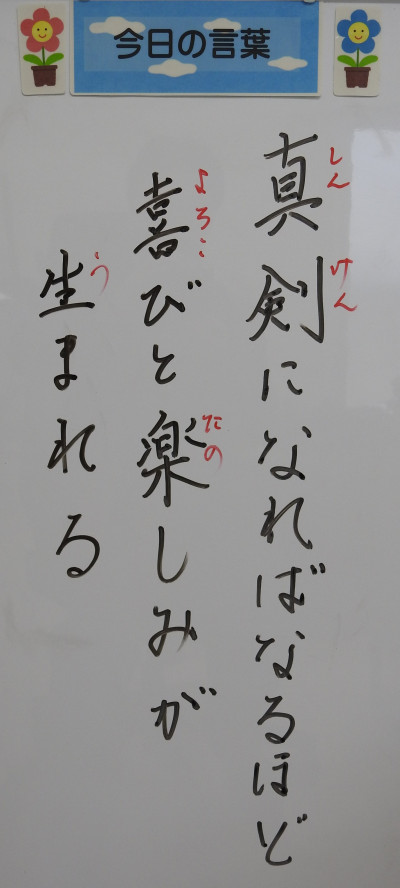 今日の言葉
真剣になればなるほど
しんけん
喜びと楽しみが
よろこ
たの
生まれる
う